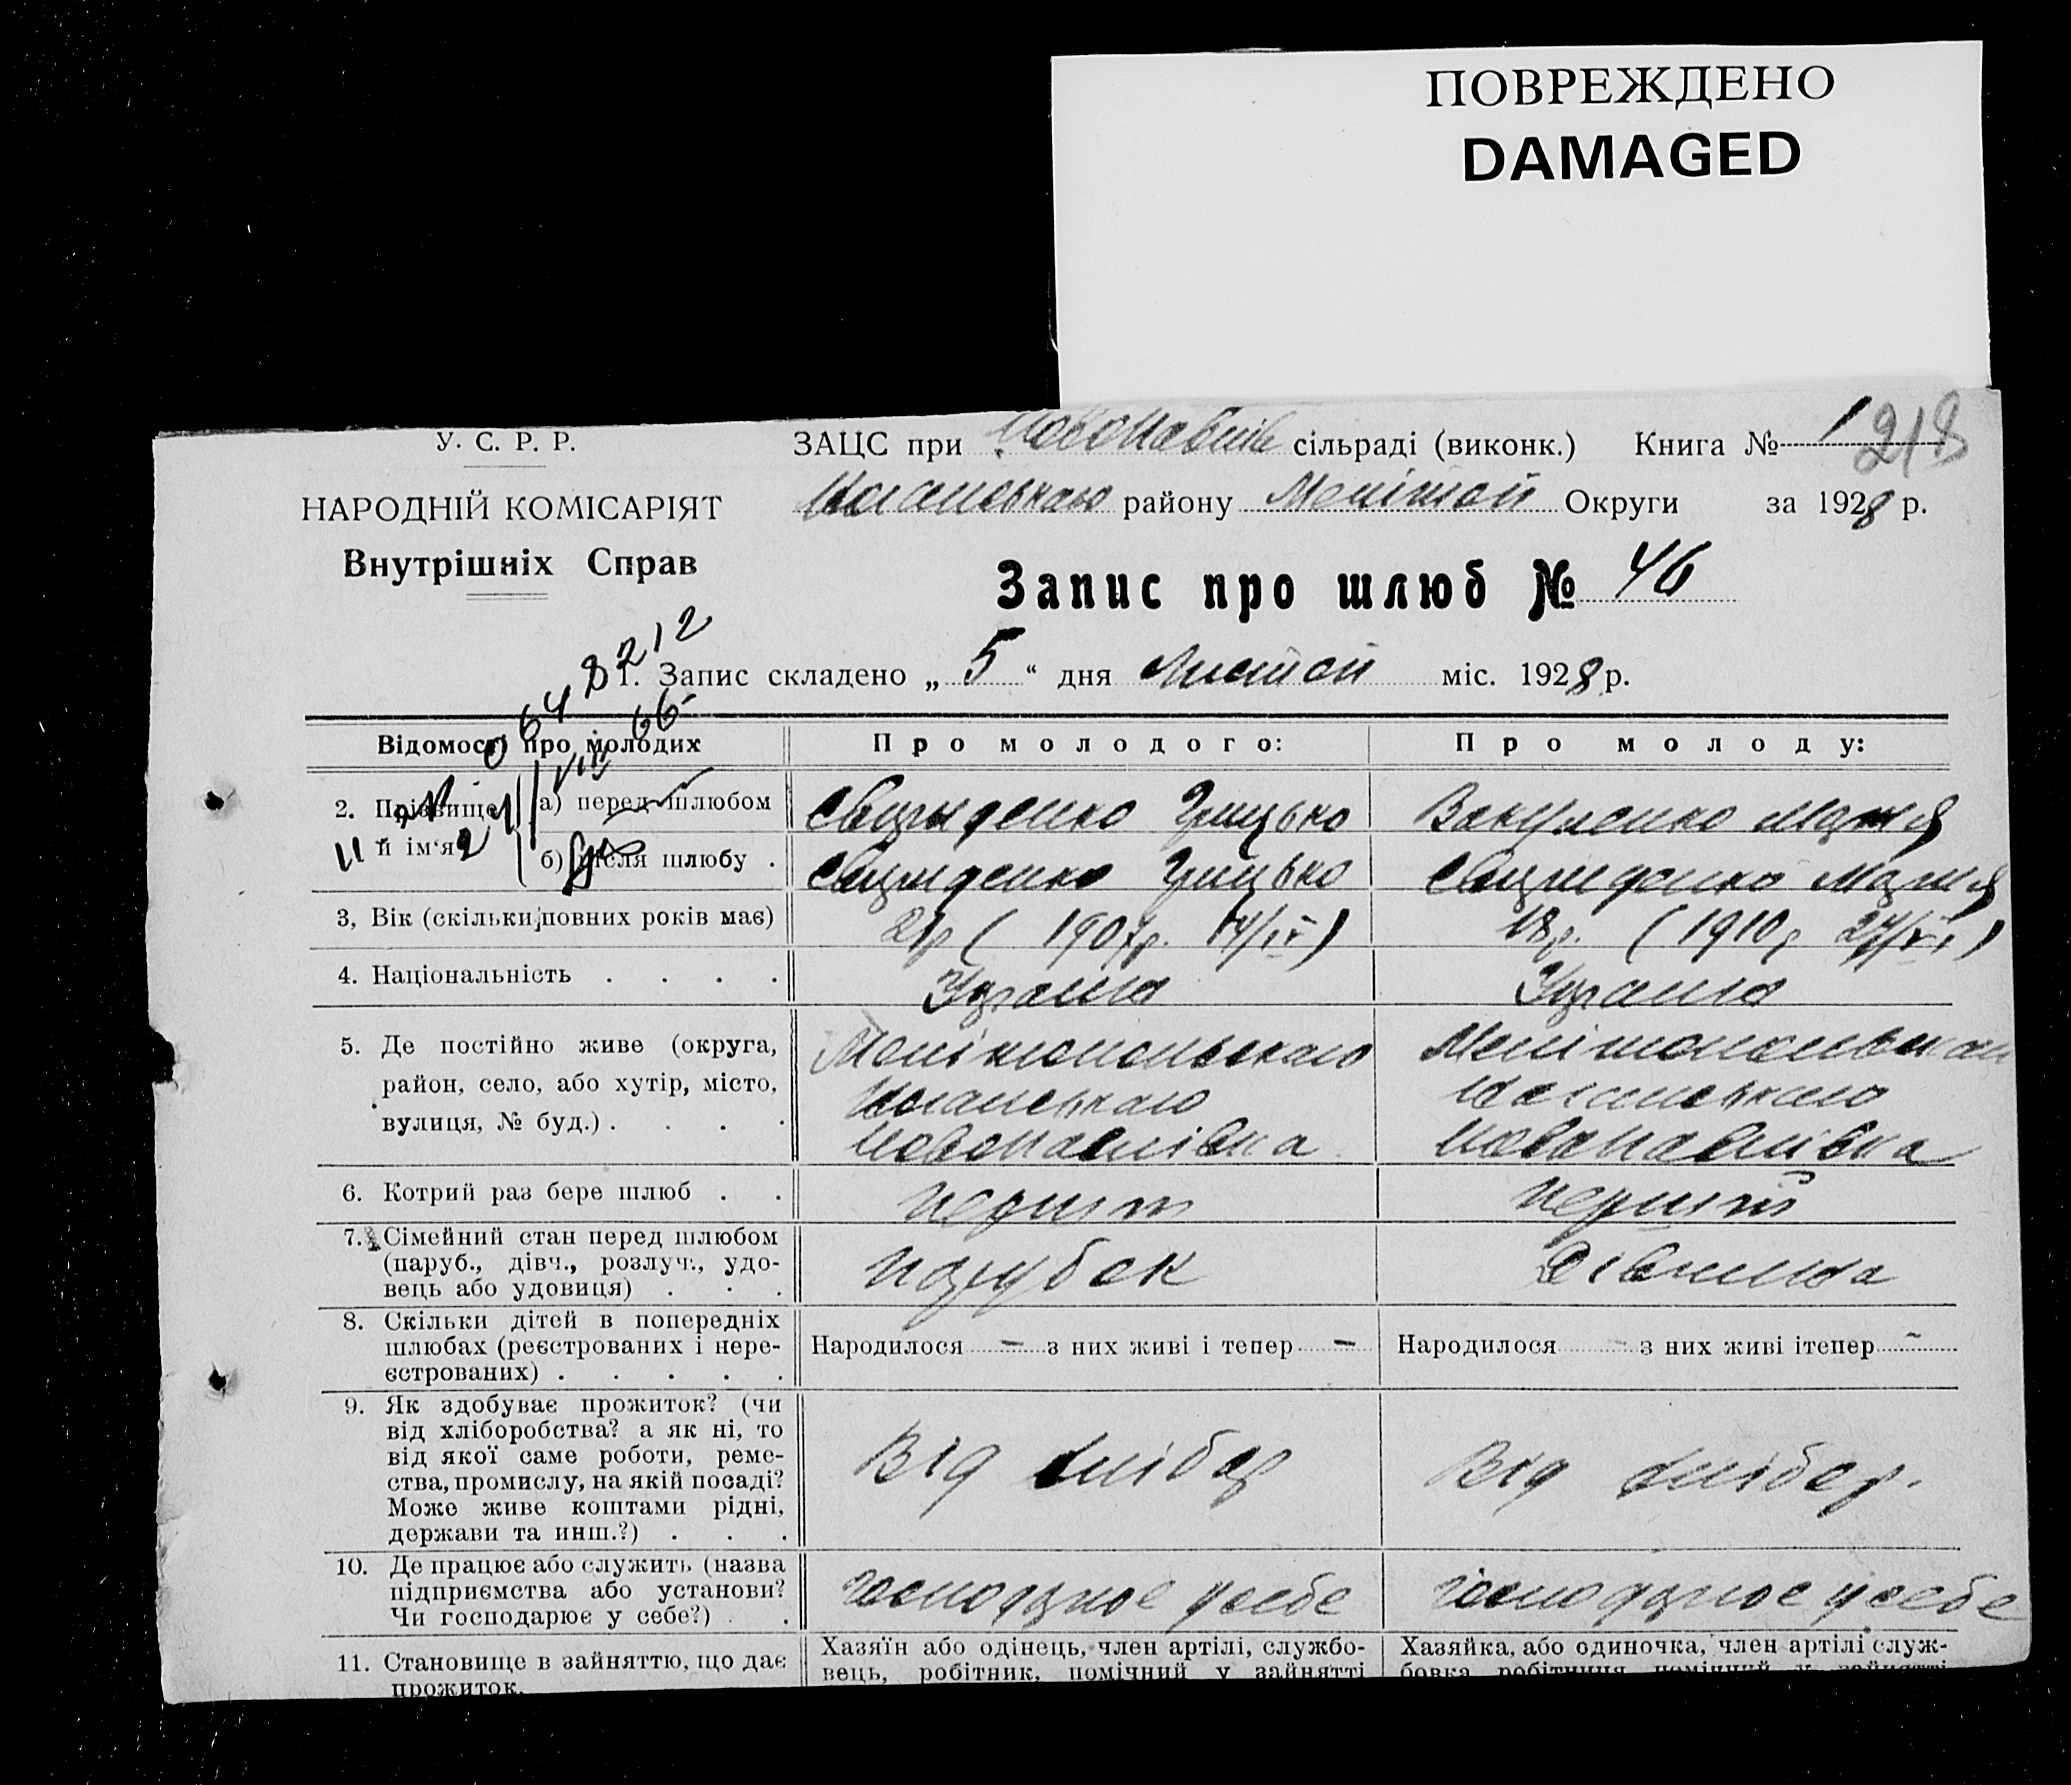 ПОВРЕЖДЕНО
DAMAGED
У. С. Р. Р.
НАРОДНІЙ КОМІСАРІЯТ
Внутрішніх Справ
ЗАЦС при Новопавлів сільраді (виконк.) Книга № 1 218
району Меліттой Округи за 1928 р.
Запис про шлюб № 46
8212
1. Запис складено „ 5 “ дня Листоп міс. 1928 р.
64 66
Відомості про молодих
Про молодого:
Про молоду:
2. Прізвище й ім'я
а) перед шлюбом
Грицько
Вакуленко Марія
б) після шлюбу .
Грицько
Марія
3, Вік (скільки повних років має)
21 р ( 1907 р. 14/IV )
18 р. ( 1910 р 27/VI )
4. Національність . . . .
Україна
Україна
5. Де постійно живе (округа,
район, село, або хутір, місто,
вулиця, № буд.) . . . .
Мелітопольського
Ногайського
Новопавлівка
Мелітопольськой
Ногайського
Новопавлівка
6. Котрий раз бере шлюб . .
перший
перший
7. Сімейний стан перед шлюбом
(паруб., дівч., розлуч., удо-
вець або удовиця) . . .
парубок
дівчина
8. Скільки дітей в попередніх
шлюбах (реєстрованих і нере-
єстрованих) . . . . .
Народилося — з них живі і тепер —
Народилося — з них живі ітепер —
9. Як здобуває прожиток? (чи
від хліборобства? а як ні, то
від якої саме роботи, реме-
ства, промислу, на якій посаді?
Може живе коштами рідні,
держави та инш.?) . . .
Від хлібор
Від хлібор.
10. Де працює або служить (назва
підприємства або установи?
Чи господарює у себе?) . .
господарює у себе
господарює у себе
11. Становище в зайняттю, що дає
прожиток.
Хазяїн або одінець, член артілі, службо-
вець, робітник, помічний у зайнятті
Хазяйка, або одиночка, член артілі служ-
бовка робітниця помічний у зайнятті